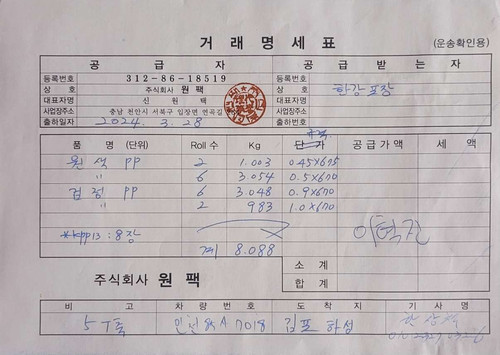 거 래 명 세 표 (운송확인용)
공 급 자 공 급 받 는 자
등록번호 312-86-18519 등록번호
상 호 주식회사 원 팩 상 호 한강포장
대표자명 신 원 택 대표자명
사업장주소 충남 천안시 서북구 입장면 연곡길 사업장주소
출하일자 2024. 3. 28 출하번호
품 명 (단위) Roll 수 Kg 단 가 규격 공 급 가 액 세 액
원색 PP 2 1.003 0.45×675
〃 6 3.054 0.5×670
검정 PP 6 3.048 0.9×670
〃 2 983 1.0×670
*KPP13 : 8장
계 8.088
소 계
주식회사 원 팩 합 계
비 고 차 량 번 호 도 착 지 기 사 명
5T축 7018 김포 하성